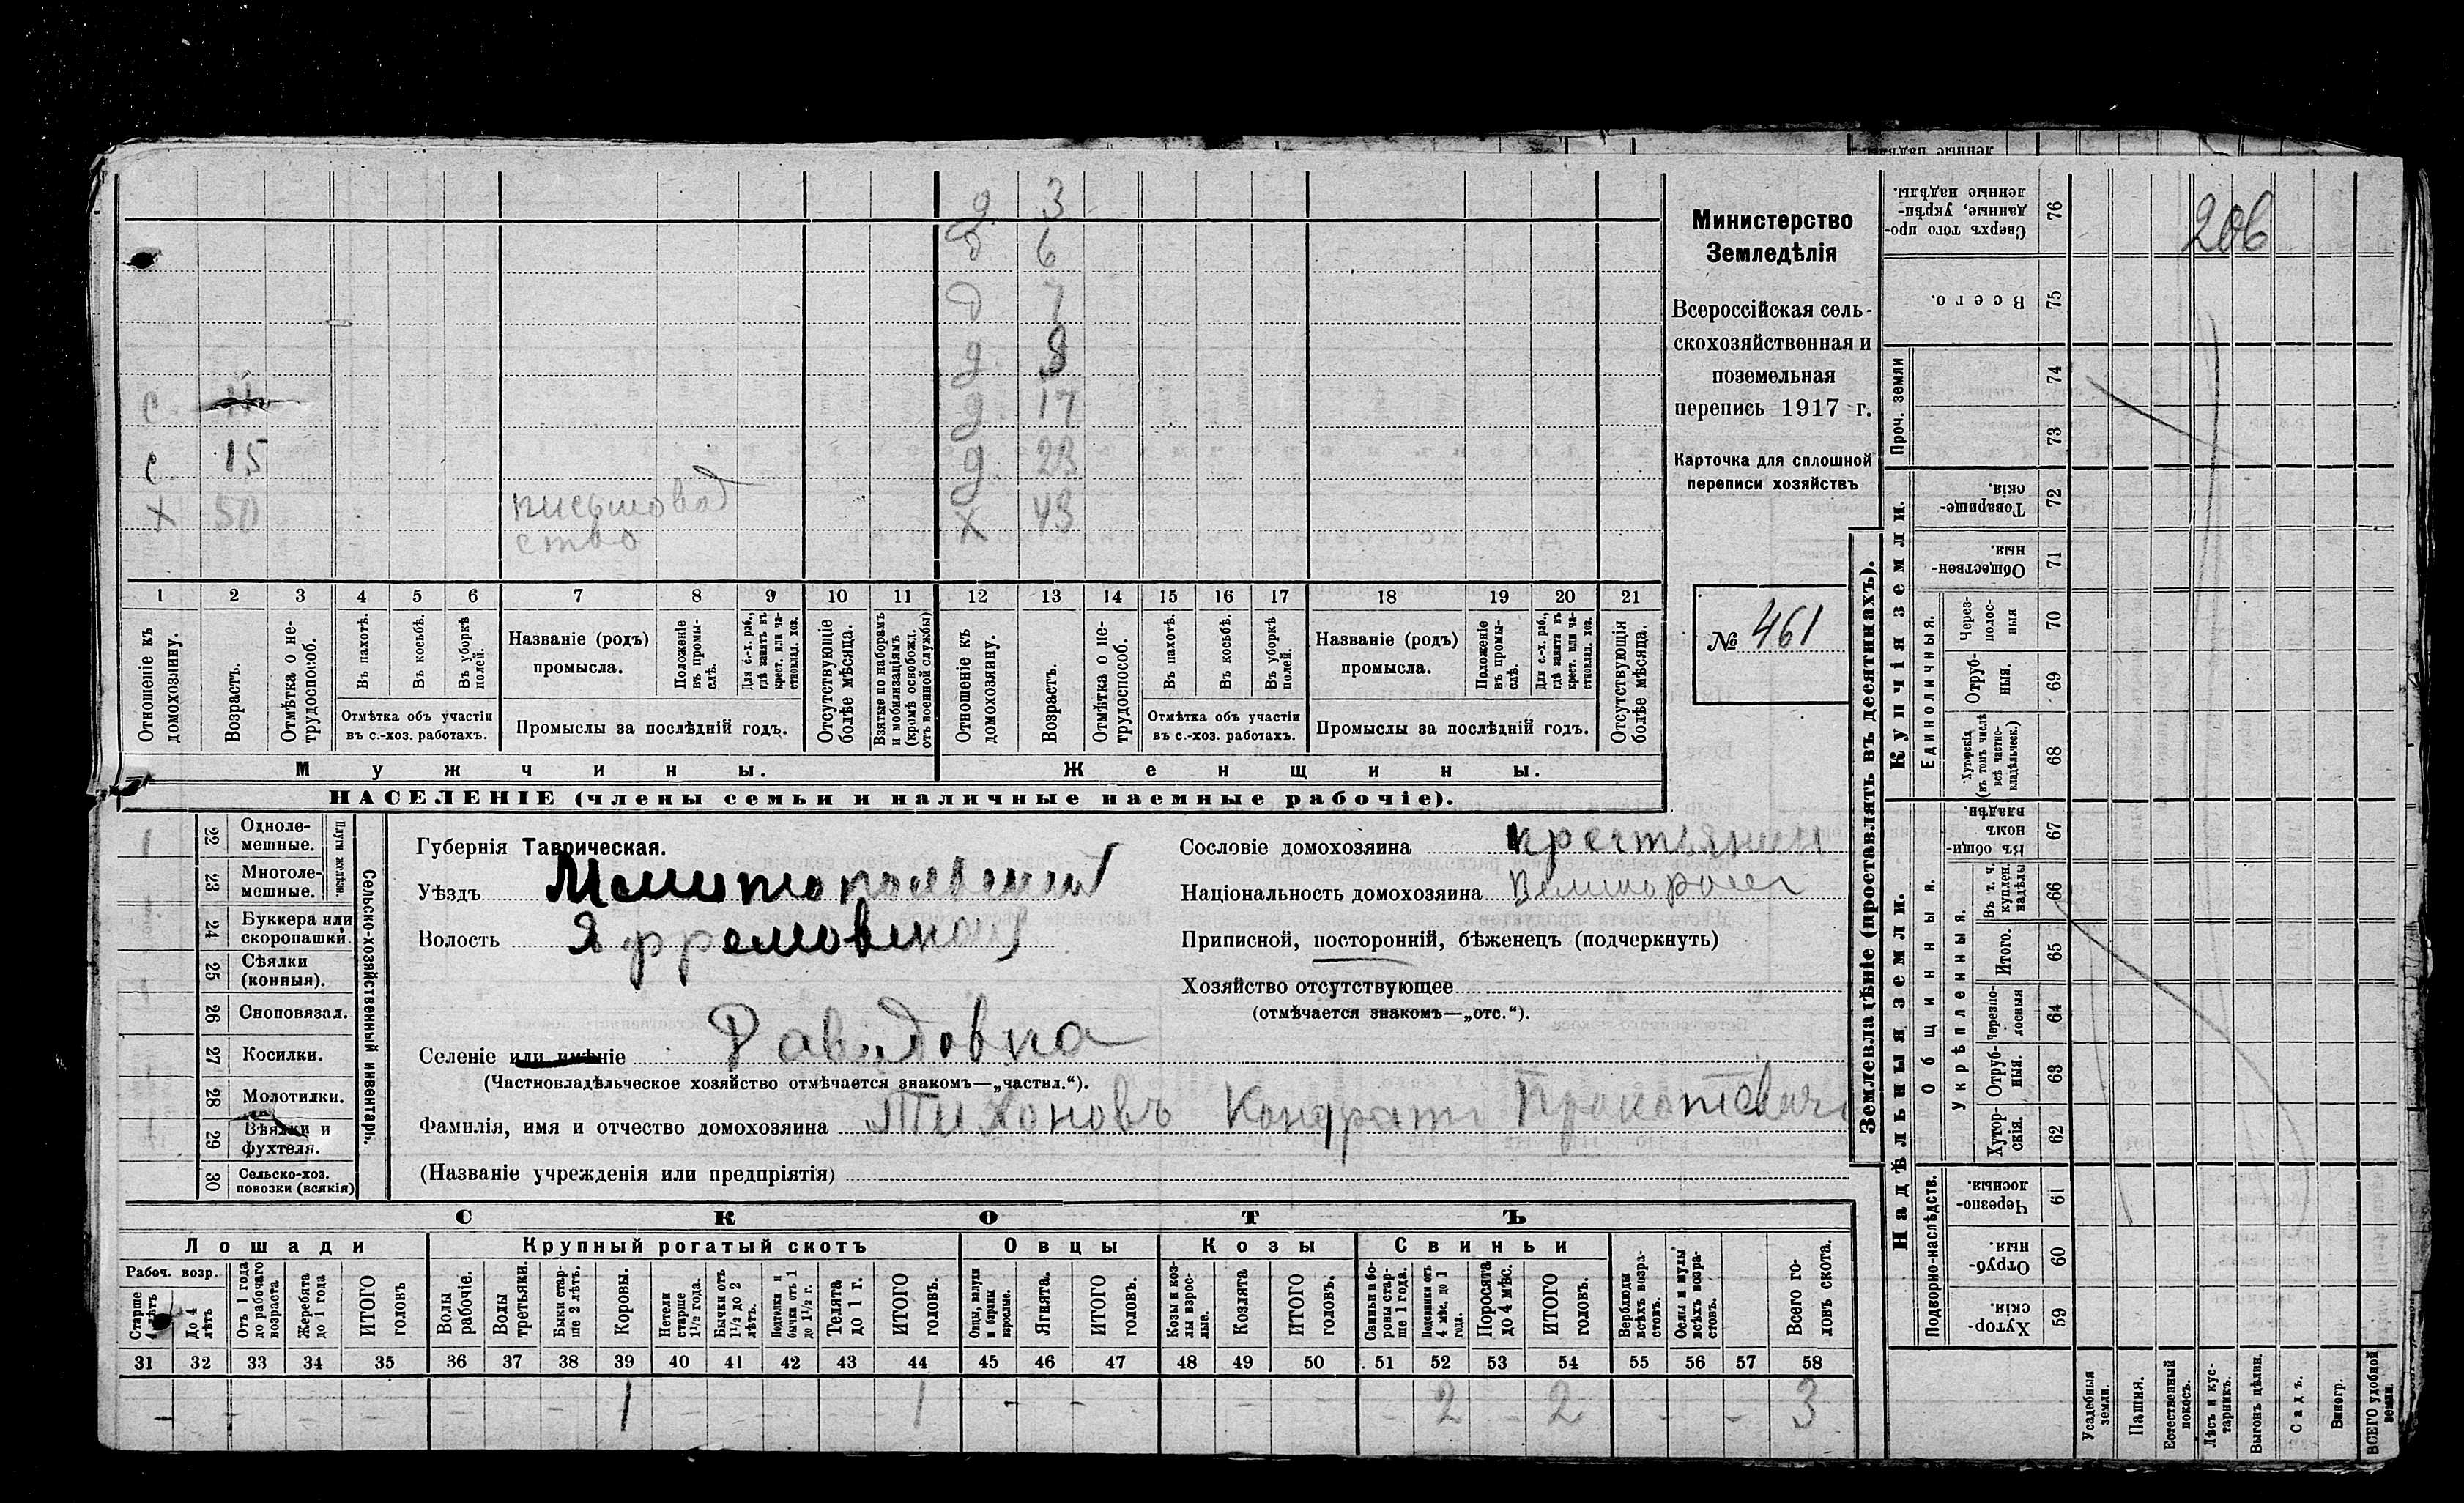 Министерство
Земледѣлія
Всероссійская сель-
скохозяйственная и
поземельная
перепись 1917 г.
Карточка для сплошной
переписи хозяйствъ
№ 461
206
д 3
д 6
д 7
д 8
с д 17
с 15 д 23
х 50 письмовод
ство х 43
1 2 3 4 5 6 7 8 9 10 11 12 13 14 15 16 17 18 19 20 21
Отношеніе къ домохозяину.
Возрастъ.
Отмѣтка о не-трудоспособ.
Въ пахотѣ.
Въ косьбѣ.
Въ уборкѣ полей.
Отмѣтка объ участіи
въ с.-хоз. работахъ.
Названіе (родъ)
промысла.
Положеніе въ промы-слѣ.
Для с.-х. раб., гдѣ занятъ въ крест. или ча-стновлад. хоз.
Промыслы за послѣдній годъ.
Отсутствующіе болѣе мѣсяца.
Взятые по наборамъ и мобилизаціямъ (кромѣ освобожд. отъ военной службы)
Отношеніе къ домохозяину.
Возрастъ.
Отмѣтка о не-трудоспособ.
Въ пахотѣ.
Въ косьбѣ.
Въ уборкѣ полей.
Отмѣтка объ участіи
въ с.-хоз. работахъ.
Названіе (родъ)
промысла.
Положеніе въ промы-слѣ.
Для с.-х. раб., гдѣ занята въ крест. или ча-стновлад. хоз.
Промыслы за послѣдній годъ.
Отсутствующія болѣе мѣсяца.
Мужчины.
Женщины.
НАСЕЛЕНІЕ (члены семьи и наличные наемные рабочіе).
22 Одноле-
мешные.
23 Многоле-
мешные.
24 Буккера или
скоропашки.
25 Сѣялки
(конныя).
26 Сноповязал.
27 Косилки.
28 Молотилки.
29 Вѣялки и
фухтеля.
30 Сельско-хоз.
повозки (всякія)
Сельско-хозяйственный инвентарь.
Губернія Таврическая.
Уѣздъ Мелитопольский
Волость Ефремовской
Селеніе или имѣніе Давидовка
(Частновладѣльческое хозяйство отмѣчается знакомъ—„частвл.“).
Фамилія, имя и отчество домохозяина Тихоновъ Кондратъ Прокопіевичъ
(Названіе учрежденія или предпріятія)
Сословіе домохозяина крестьянин
Національность домохозяина Великоросс
Приписной, посторонній, бѣженецъ (подчеркнуть)
Хозяйство отсутствующее
(отмѣчается знакомъ—„отс.“).
СКОТЪ
Лошади
Крупный рогатый скотъ
Овцы
Козы
Свиньи
Рабоч. возр.
Старше 4 лѣтъ
До 4 лѣтъ
Отъ 1 года до рабочаго возраста
Жеребята до 1 года
ИТОГО головъ
Волы рабочіе.
Волы третьяки.
Быки стар-ше 2 лѣтъ.
Коровы.
Нетели старше 1½ года.
Бычки отъ 1½ до 2 лѣтъ.
Подтелки и бычки отъ 1 до 1½ г.
Телята до 1 г.
ИТОГО головъ.
Овцы, валухи и бараны взрослые.
Ягнята.
ИТОГО головъ.
Козы и коз-лы взрос-лые.
Козлята
ИТОГО головъ.
Свиньи и бо-ровы стар-ше 1 года.
Подсвинки отъ 4 мѣс. до 1 года.
Поросята до 4 мѣс.
ИТОГО головъ.
Верблюды всѣхъ возра-стовъ.
Ослы и мулы всѣхъ возра-стовъ.
Всего го-ловъ скота.
31 32 33 34 35 36 37 38 39 40 41 42 43 44 45 46 47 48 49 50 51 52 53 54 55 56 57 58
1 1 2 2 3
Землевладѣніе (проставлять въ десятинахъ).
Купчія земли.
Надѣльныя земли.
Сверхъ того про-данные, укрѣп-ленные надѣлы. 76
Всего. 75
Проч. земли
74
73
Товарище-скія. 72
Обществен-ныя. 71
Единоличныя.
Через-полос-ныя 70
Отруб-ныя. 69
Хуторскія (въ томъ числѣ всѣ частно-владѣльческ.) 68
Въ общин-номъ владѣн. 67
Общинныя.
Укрѣпленныя.
Въ т. ч. куплен. надѣлы 66
Итого. 65
Черезпо-лосныя 64
Отруб-ныя. 63
Хутор-скія. 62
Подворно-наслѣдств.
Черезпо-лосныя. 61
Отруб-ныя. 60
Хутор-скія. 59
Усадебныя земли.
Пашня.
Естественный покосъ.
Лѣсъ и кус-тарникъ.
Выгонъ цѣлин.
Садъ.
Виногр.
ВСЕГО удобной земли.